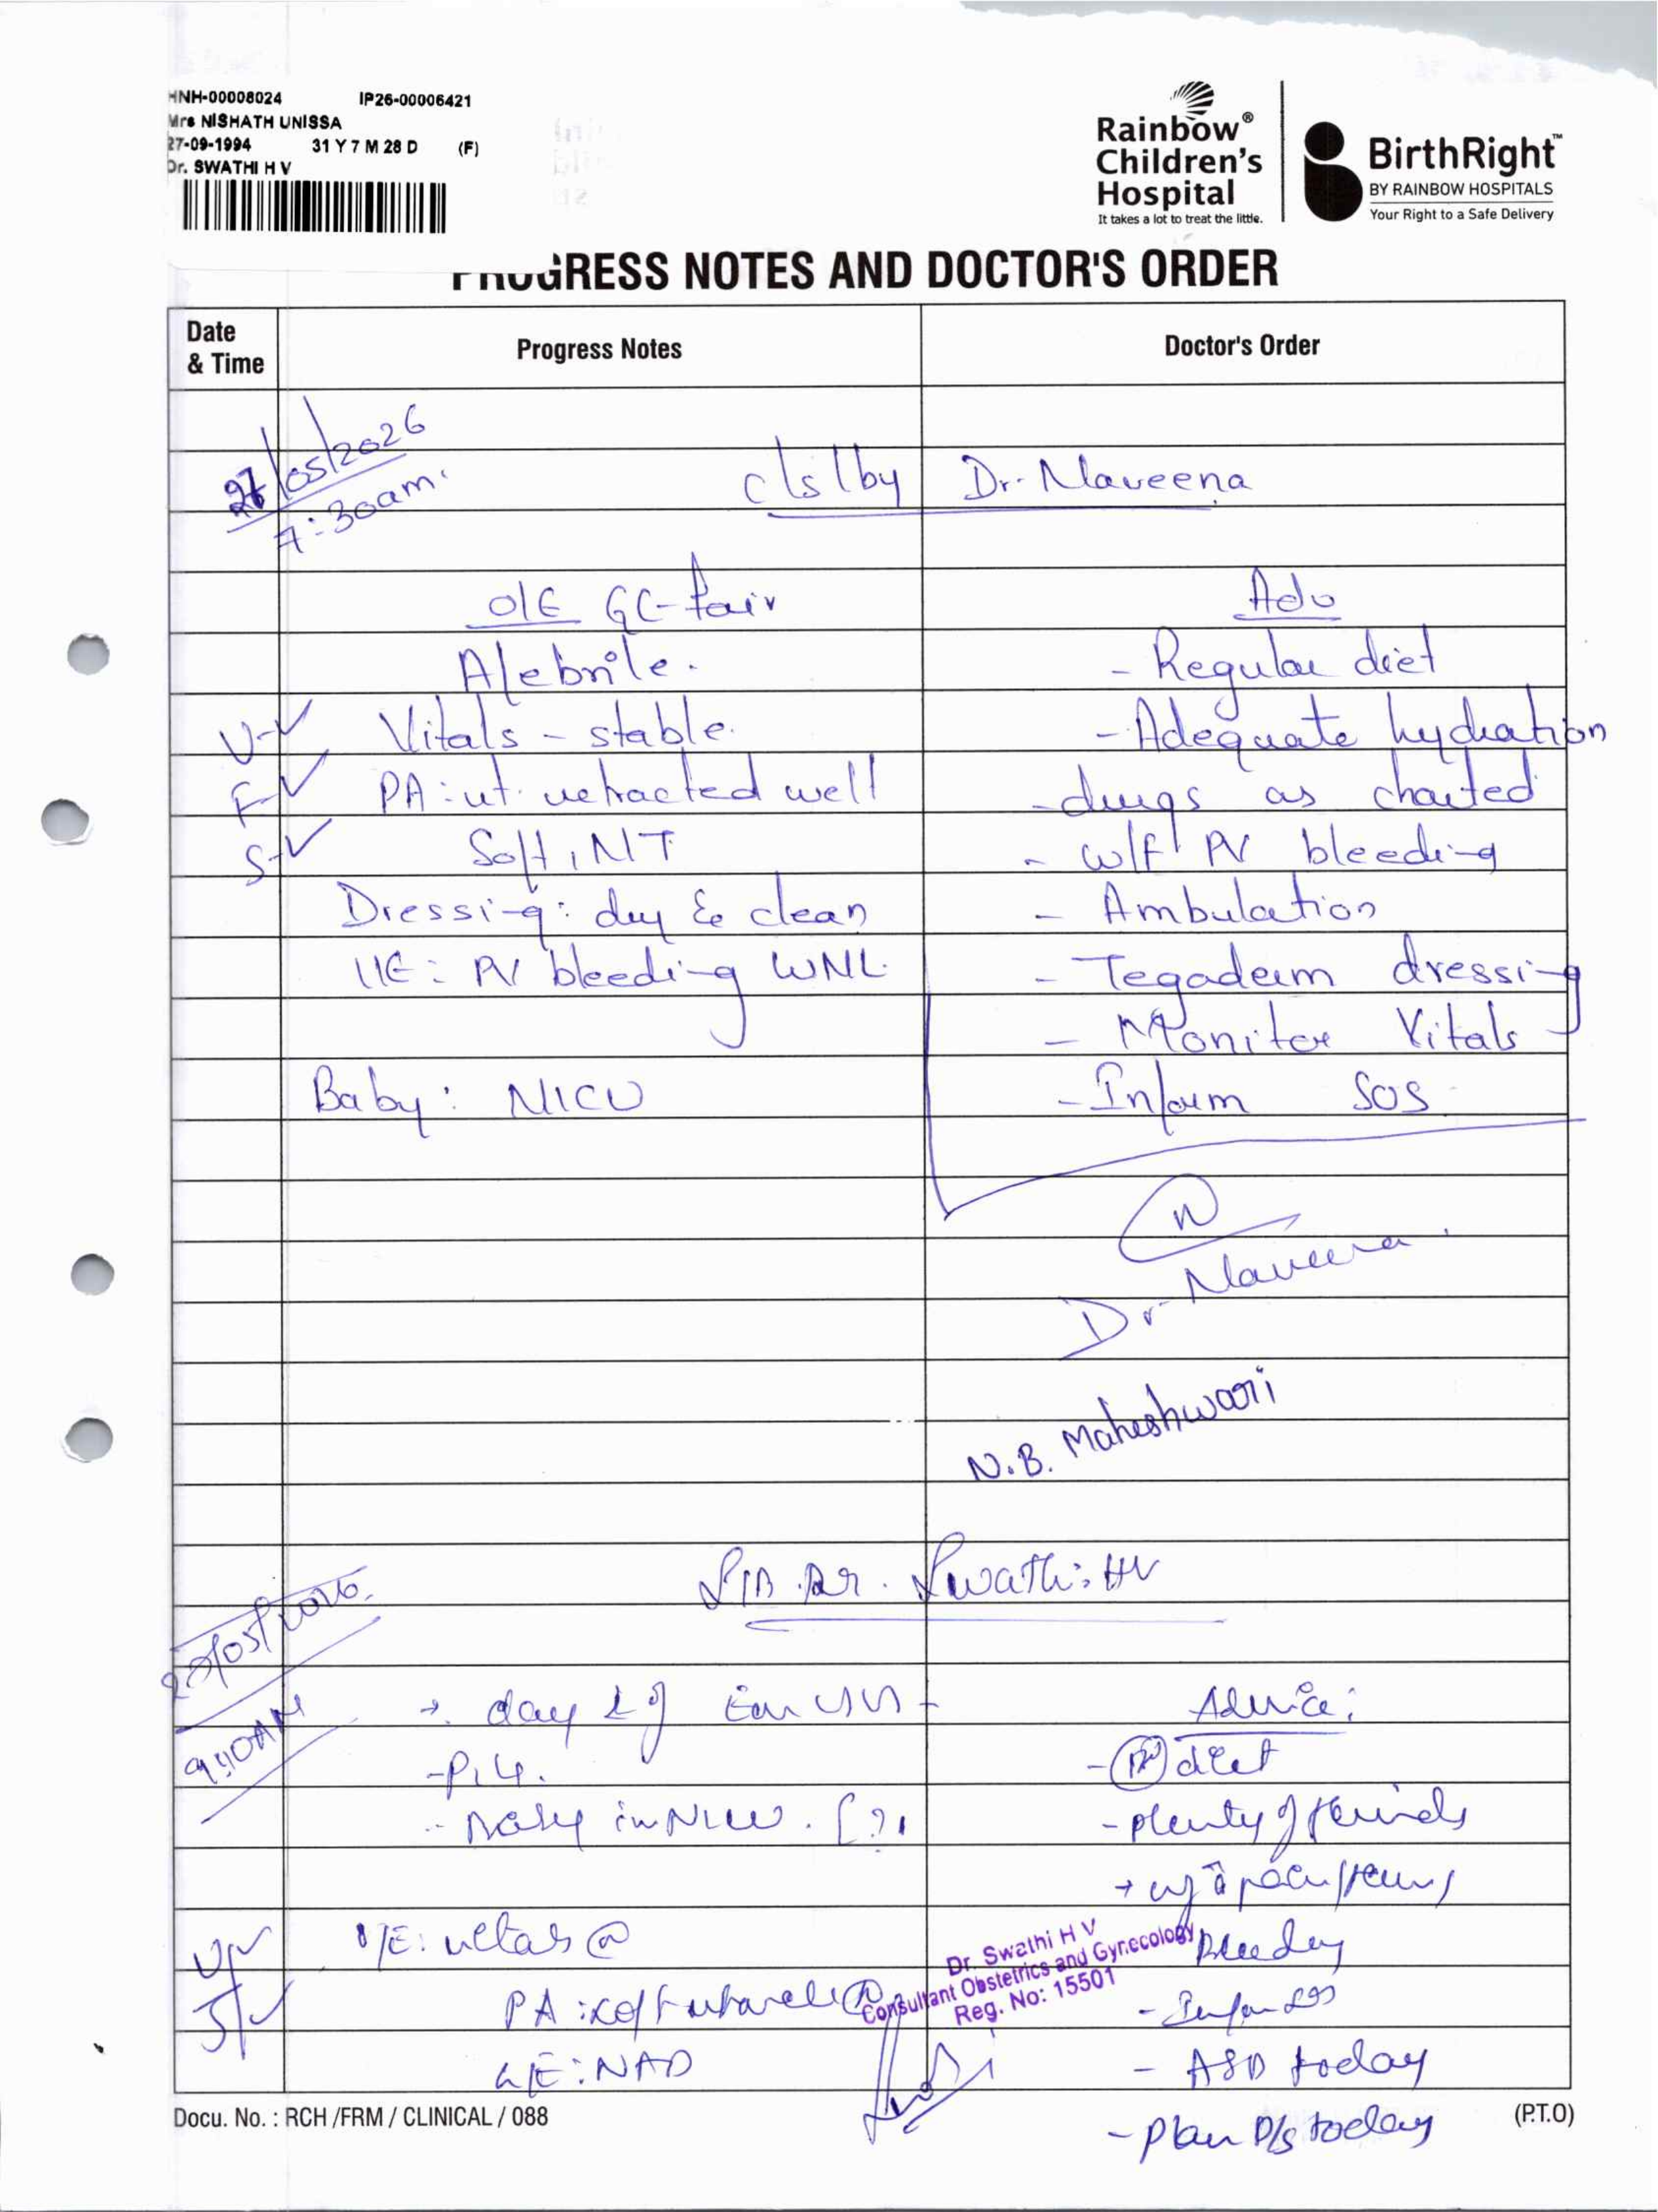 HNH-00008024 IP26-00006421
Mrs NISHATH UNISSA
27-09-1994 31 Y 7 M 28 D (F)
Dr. SWATHI H V
Rainbow® Children's Hospital
It takes a lot to treat the little.
BirthRight™
BY RAINBOW HOSPITALS
Your Right to a Safe Delivery
PROGRESS NOTES AND DOCTOR'S ORDER
Date & Time Progress Notes Doctor's Order
27/05/2026
7:30am.
c/s/by Dr. Naveena
O/E GC-fair Adv
Afebrile. - Regular diet
U-✓ Vitals - stable. - Adequate hydration
F-✓ PA: ut. retracted well - drugs as charted
S-✓ Soft, NT - w/f PV bleeding
Dressing: dry & clean - Ambulation
L/E: PV bleeding WNL - Tegaderm dressing
- Monitor Vitals
Baby: NICU - Inform SOS
Dr. Naveena
N.B. Maheshwari
S/B Dr. Swathi HV
/05/2026
9:40AM
day of Advice:
- P1L1. - diet
- Baby in NICU. - plenty of fluids
O/E: vitals bleeding
U/✓
S/✓
PA: soft
Dr. Swathi H V
Consultant Obstetrics and Gynecology
Reg. No: 15501
- Inform SOS
L/E: NAD - ASD today
- Plan D/s today
Docu. No. : RCH /FRM / CLINICAL / 088 (P.T.O)